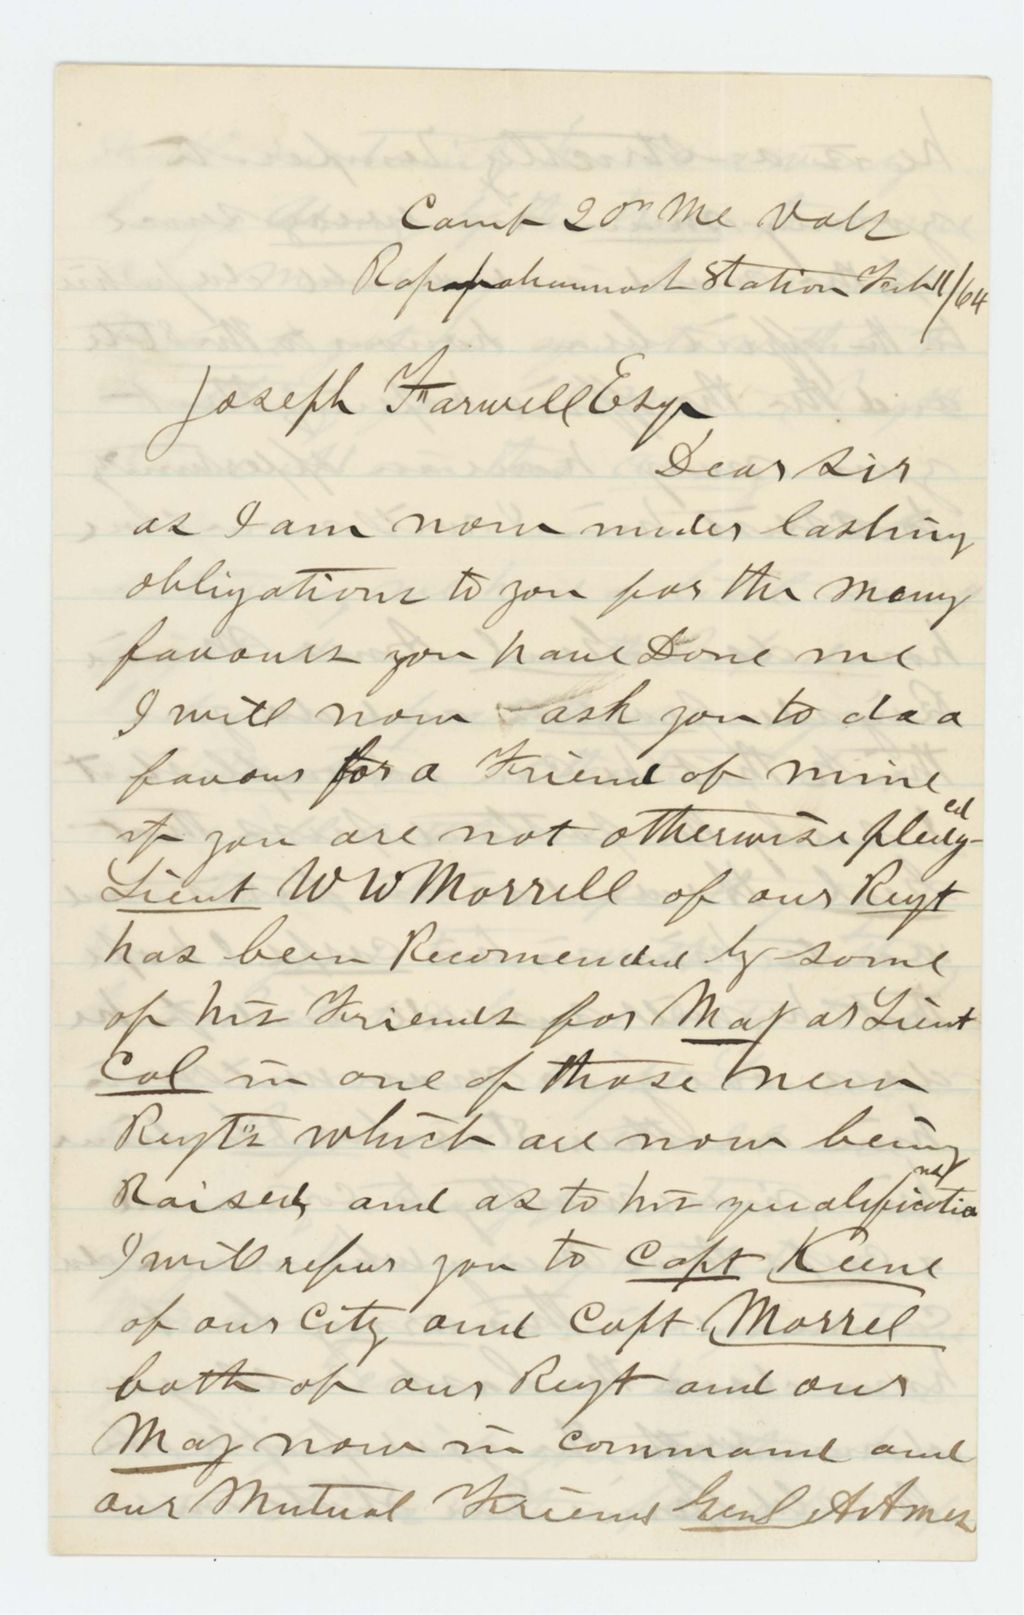 Camp 20th Me Vols
Rappahannock Station Feb 11/64
Joseph Farwell Esqr
Dear Sir
as I am now under lasting
obligations to you for the many
favours you have Done me
I will now ask you to do a
favour for a Friend of mine
if you are not otherwise pledg-ed
Lieut W W Morrell of our Regt
has been Recomended by some
of his Friends for Maj or Lieut
Col in one of those new
Regt"s which are now being
Raised, and as to his qualifications
I will refur you to Capt Keene
of our City and Capt Morrel
both of our Regt and our
Maj now in command and
our Mutual Friend Genl A Ames